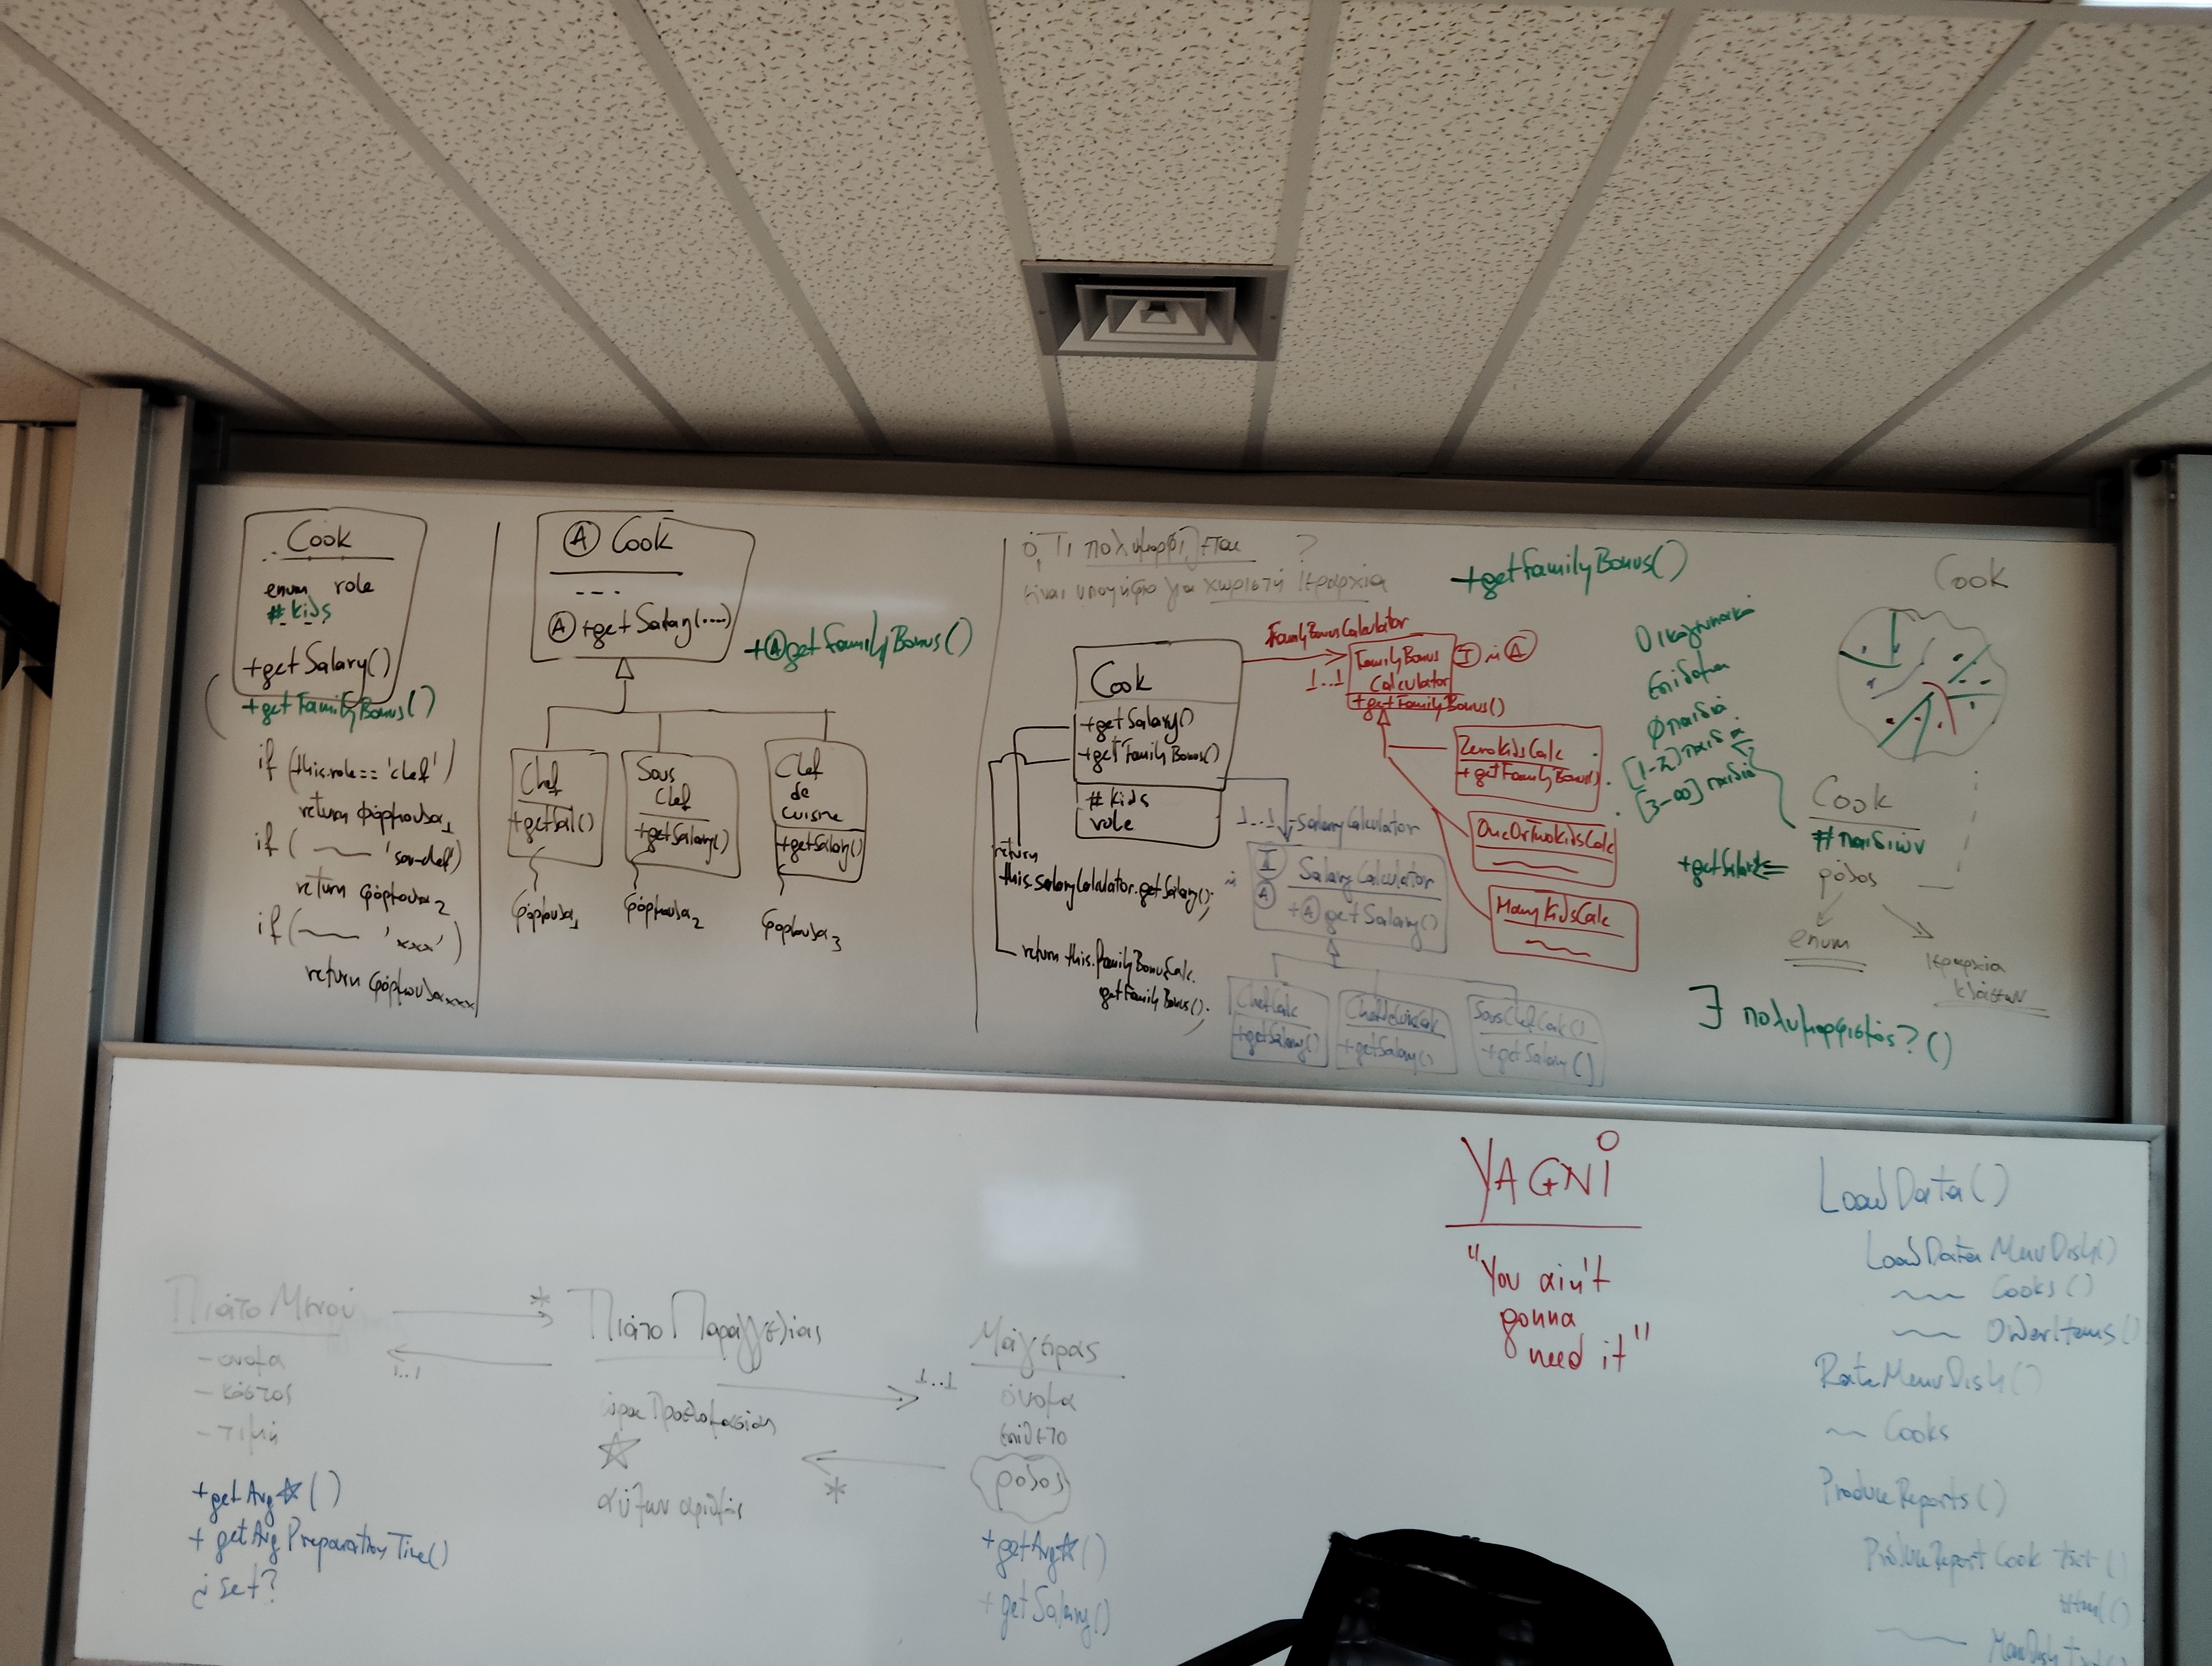 Cook
enum role
# kids
+getSalary()
+getFamilyBonus()
if (this.role == 'chef')
return φόρμουλα1
if ( 'sou-chef')
return φόρμουλα2
if ( 'xxx')
return φόρμουλαxxx
Ⓐ Cook
---
Ⓐ +getSalary(....)
+Ⓐ getFamilyBonus()
Chef
+getSal()
φόρμουλα1
Sous
Chef
+getSalary()
φόρμουλα2
Chef
de
cuisine
+getSalary()
φόρμουλα3
ό,τι πολυμορφίζεται ?
είναι υποψήφιο για χωριστή ιεραρχία
+getFamilyBonus()
Cook
+getSalary()
+getFamilyBonus()
# kids
role
return
this.salaryCalculator.getSalary();
return this.familyBonusCalc.
getFamilyBonus();
FamilyBonusCalculator
1..1
FamilyBonus
Calculator
Ⓘ ή Ⓐ
+getFamilyBonus()
ZeroKidsCalc
+getFamilyBonus()
OneOrTwoKidsCalc
ManyKidsCalc
1..1
-SalaryCalculator
Ⓘ
ή
Ⓐ
SalaryCalculator
+Ⓐ getSalary()
ChefCalc
+getSalary()
+getSalary()
SousChefCalc()
+getSalary()
Οικογενειακά
επιδόματα
0 παιδιά
[1-2] παιδιά
[3-∞] παιδιά
Cook
Cook
# παιδιών
ρόλος
+getSalary
enum
ιεραρχία
κλάσεων
∃ πολυμορφισμός?()
Πιάτο Μενού
- όνομα
- κόστος
- τιμή
+getAvg☆()
+ getAvgPreparationTime()
¿ set?
*
1..1
Πιάτο Παραγγελίας
ώρα Προετοιμασίας
☆
αύξων αριθμός
1..1
*
Μάγειρας
όνομα
επίθετο
ρόλος
+getAvg☆()
+getSalary()
YAGNI
"You ain't
gonna
need it"
LoadData()
LoadDataMenuDish()
Cooks()
OrderItems()
RateMenuDish()
Cooks
ProduceReports()
ProduceReport Cook Txt()
Html()